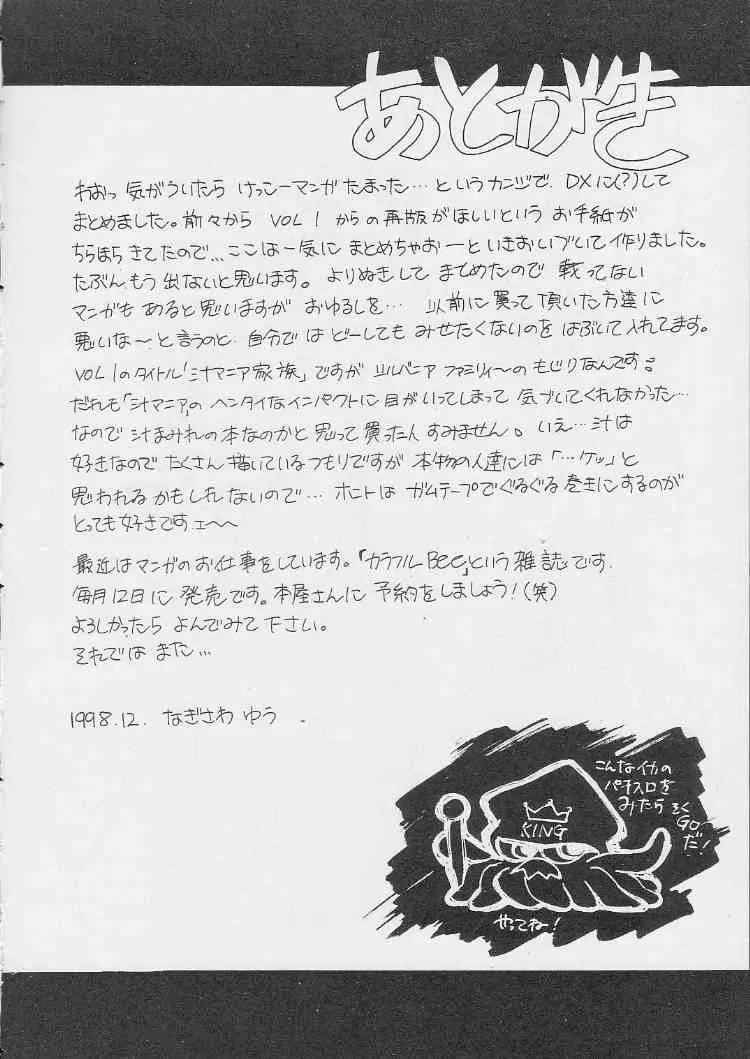 あとがき
わおっ 気がついたら けっこーマンガ たまった…というカンジで、DXに(?)して
まとめました。前々から VOL 1 からの再版がほしいという お手紙が
ちらほら きてたので… ここは一気に まとめちゃおーと いきおいづいて作りました。
たぶん もう 出ないと思います。よりぬきして まとめたので 載ってない
マンガも あると 思いますが おゆるしを… 以前に 買って 頂いた 方達に
悪いな〜と 言うのと、自分では どーしても みせたくないのを はぶいて入れてます。
VOL 1のタイトル「汁マニア家族」ですが シルバニア ファミリィ〜の もじりなんです。
だれも「汁マニア」の ヘンタイなインパクトに 目がいってしまって 気づいてくれなかった…
なので 汁まみれの本なのかと 思って 買った人 すみません。いえ…汁は
好きなので たくさん 描いているつもりですが 本物の人達には「…ケッ」と
思われる かもしれないので… ホントは ガムテープでぐるぐる 巻きにするのが
とっても 好きですェ〜〜
最近はマンガのお仕事をしています。「カラフルBee」という 雑誌です。
毎月12日に 発売です。本屋さんに 予約をしましょう!(笑)
よろしかったら よんでみて 下さい。
それでは また…
1998.12. なぎさわ ゆう
こんなイカの
パチスロを
みたら そく
GO
だ!
KING
やってね!